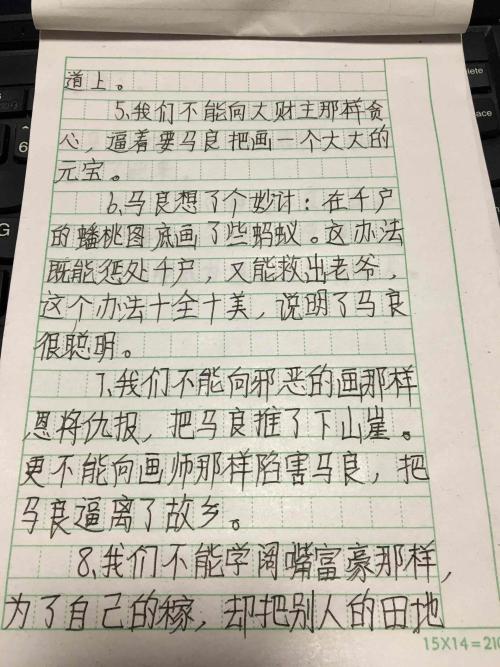 道上。
5、我们不能向大财主那样贪
心，逼着要马良把画一个大大的
元宝。
6、马良想了个妙计：在千户
的蟠桃图底画了些蚂蚁。这办法
既能惩处千户，又能救出老爷，
这个办法十全十美，说明了马良
很聪明。
7、我们不能向邪恶的画那样
恩将仇报，把马良推了下山崖。
更不能向画师那样陷害马良，把
马良逼离了故乡。
8、我们不能学阔嘴富豪那样，
为了自己的稼，却把别人的田地
15X14=210